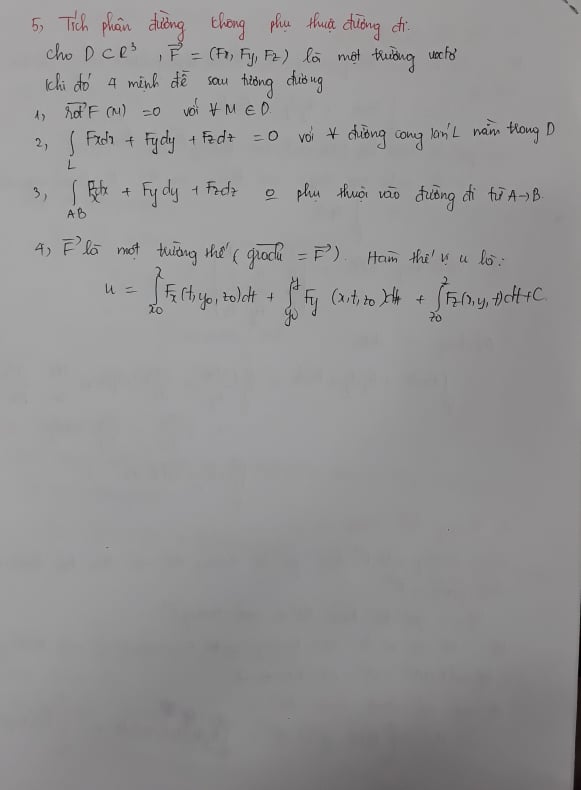 5, Tích phân đường không phụ thuộc đường đi:
cho D ⊂ R³, F⃗ = (Fx, Fy, Fz) là một trường vectơ
khi đó 4 mệnh đề sau tương đương
1, rot⃗ F (M) = 0 với ∀ M ∈ D.
2, ∫_L Fxdx + Fydy + Fzdz = 0 với ∀ đường cong kín L nằm trong D
3, ∫_AB Fxdx + Fydy + Fzdz o̲ phụ thuộc vào đường đi từ A→B.
4, F⃗ là một trường thế (gradu = F⃗). Hàm thế vị u là:
u = ∫_{x0}^{x} Fx(t, y0, z0)dt + ∫_{y0}^{y} Fy (x, t, z0)dt + ∫_{z0}^{z} Fz(x, y, t)dt + C.